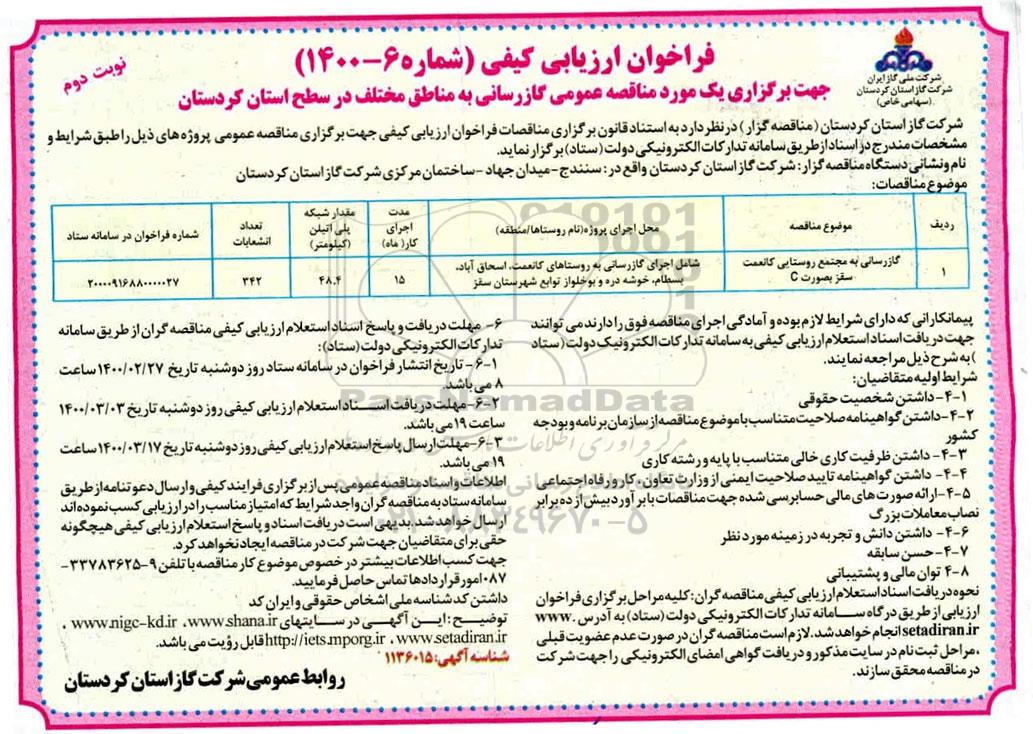 شرکت ملی گاز ایران
شرکت گاز استان کردستان
(سهامی خاص)
فراخوان ارزیابی کیفی (شماره ۶-۱۴۰۰)
نوبت دوم
جهت برگزاری یک مورد مناقصه عمومی گازرسانی به مناطق مختلف در سطح استان کردستان
شرکت گاز استان کردستان (مناقصه گزار) در نظر دارد به استناد قانون برگزاری مناقصات فراخوان ارزیابی کیفی جهت برگزاری مناقصه عمومی پروژه های ذیل را طبق شرایط و
مشخصات مندرج در اسناد از طریق سامانه تدارکات الکترونیکی دولت (ستاد) برگزار نماید.
نام و نشانی دستگاه مناقصه گزار: شرکت گاز استان کردستان واقع در: سنندج - میدان جهاد - ساختمان مرکزی شرکت گاز استان کردستان
موضوع مناقصات:
ردیف
موضوع مناقصه
محل اجرای پروژه(نام روستاها/منطقه)
مدت
اجرای
کار( ماه)
مقدار شبکه
پلی اتیلن
(کیلومتر)
تعداد
انشعابات
شماره فراخوان در سامانه ستاد
۱
گازرسانی به مجتمع روستایی کانعمت
سقز بصورت C
شامل اجرای گازرسانی به روستاهای کانعمت، اسحاق آباد،
بسطام، خوشه دره و بوخلواز توابع شهرستان سقز
۱۵
۴۸.۴
۳۴۲
۲۰۰۰۰۹۱۶۸۸۰۰۰۰۰۲۷
پیمانکارانی که دارای شرایط لازم بوده و آمادگی اجرای مناقصه فوق را دارند می توانند
جهت دریافت اسناد استعلام ارزیابی کیفی به سامانه تدارکات الکترونیک دولت (ستاد
) به شرح ذیل مراجعه نمایند.
شرایط اولیه متقاضیان:
۴-۱- داشتن شخصیت حقوقی
۴-۲- داشتن گواهینامه صلاحیت متناسب با موضوع مناقصه از سازمان برنامه و بودجه
کشور
۴-۳- داشتن ظرفیت کاری خالی متناسب با پایه و رشته کاری
۴-۴- داشتن گواهینامه تایید صلاحیت ایمنی از وزارت تعاون، کار و رفاه اجتماعی
۴-۵- ارائه صورت های مالی حسابرسی شده جهت مناقصات با برآورد بیش از ده برابر
نصاب معاملات بزرگ
۴-۶- داشتن دانش و تجربه در زمینه مورد نظر
۴-۷- حسن سابقه
۴-۸ توان مالی و پشتیبانی
نحوه دریافت اسناد استعلام ارزیابی کیفی مناقصه گران: کلیه مراحل برگزاری فراخوان
ارزیابی از طریق درگاه سامانه تدارکات الکترونیکی دولت (ستاد) به آدرس www.
setadiran.ir انجام خواهد شد. لازم است مناقصه گران در صورت عدم عضویت قبلی
، مراحل ثبت نام در سایت مذکور و دریافت گواهی امضای الکترونیکی را جهت شرکت
در مناقصه محقق سازند.
۶- مهلت دریافت و پاسخ اسناد استعلام ارزیابی کیفی مناقصه گران از طریق سامانه
تدارکات الکترونیکی دولت (ستاد):
۶-۱- تاریخ انتشار فراخوان در سامانه ستاد روز دوشنبه تاریخ ۱۴۰۰/۰۲/۲۷ ساعت
۸ می باشد.
۶-۲- مهلت دریافت اسناد استعلام ارزیابی کیفی روز دوشنبه تاریخ ۱۴۰۰/۰۳/۰۳
ساعت ۱۹ می باشد.
۶-۳- مهلت ارسال پاسخ استعلام ارزیابی کیفی روز دوشنبه تاریخ ۱۴۰۰/۰۳/۱۷ ساعت
۱۹ می باشد.
اطلاعات و اسناد مناقصه عمومی پس از برگزاری فرایند کیفی و ارسال دعوتنامه از طریق
سامانه ستاد به مناقصه گران واجد شرایط که امتیاز مناسب را در ارزیابی کسب نموده اند
ارسال خواهد شد. بدیهی است دریافت اسناد و پاسخ استعلام ارزیابی کیفی هیچگونه
حقی برای متقاضیان جهت شرکت در مناقصه ایجاد نخواهد کرد.
جهت کسب اطلاعات بیشتر در خصوص موضوع کار مناقصه با تلفن ۹-۳۳۷۸۳۶۲۵-
۰۸۷ امور قراردادها تماس حاصل فرمایید.
داشتن کد شناسه ملی اشخاص حقوقی و ایران کد
توضیح: این آگهی در سایتهای www.shana.ir، www.nigc-kd.ir ،
www.setadiran.ir ، http://iets.mporg.ir قابل رؤیت می باشد.
شناسه آگهی: ۱۱۳۶۰۱۵
روابط عمومی شرکت گاز استان کردستان
ParsNamadData
۰۲۱-۸۸۳۴۹۶۷۰-۵